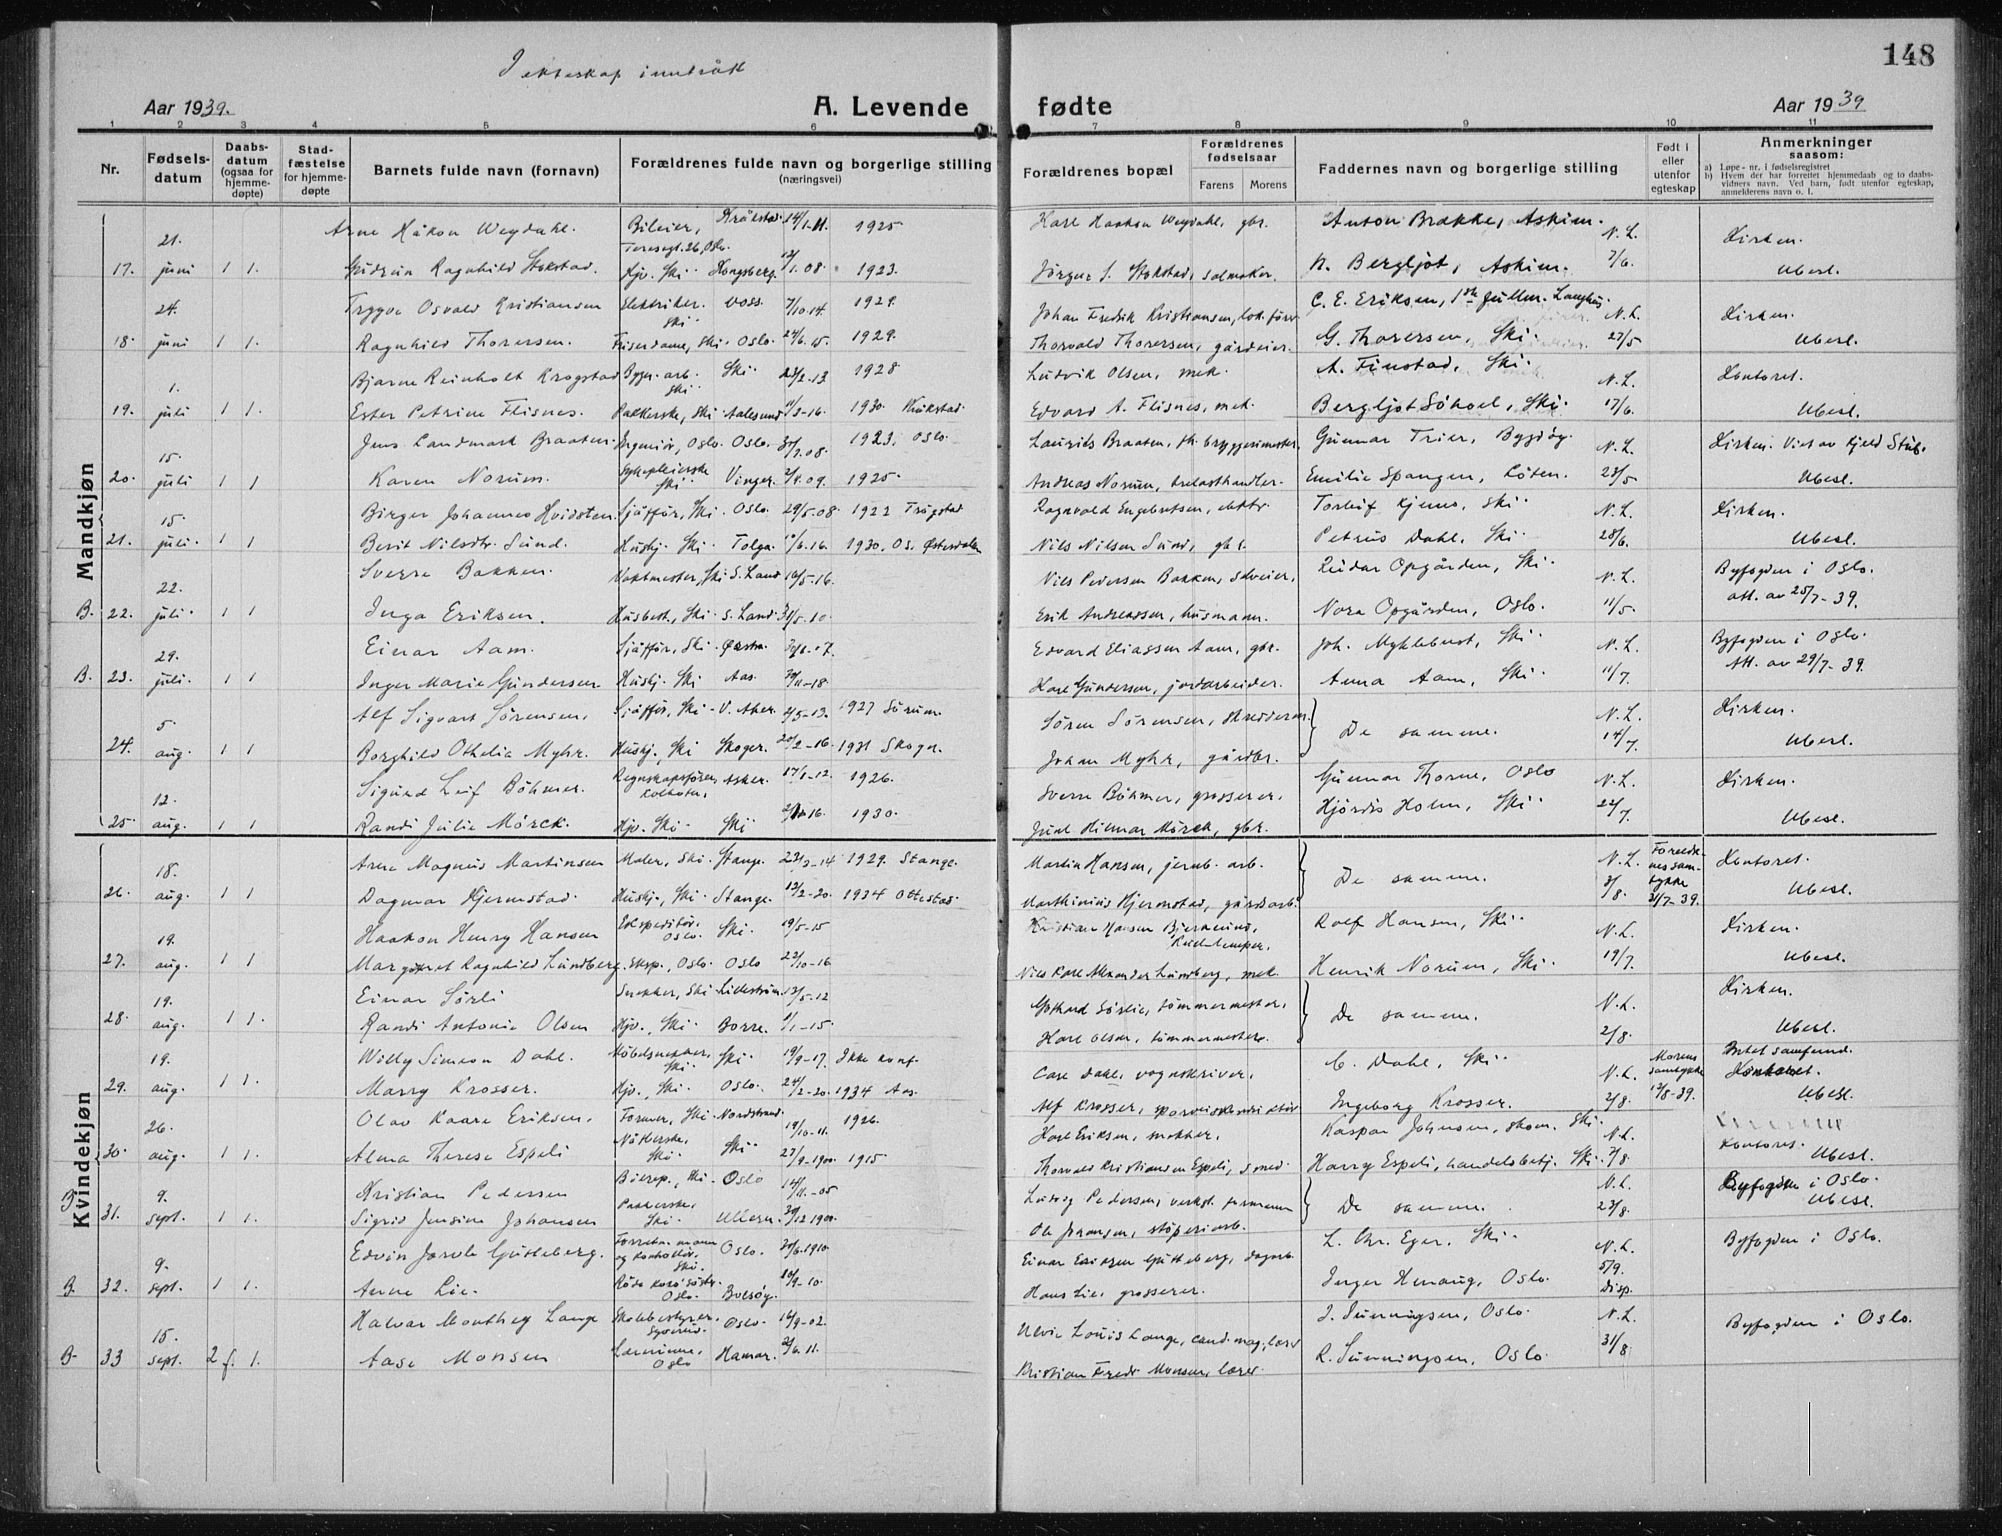 148
I ekteskap inntrått
Aar 1939.
A. Levende fødte
Aar 1939
1 2 3 4 5 6 7 8 9 10 11
Nr.
Fødselsdatum
Daabsdatum (ogsaa for hjemmedøpte)
Stadfæstelse for hjemmedøpte
Barnets fulde navn (fornavn)
Forældrenes fulde navn og borgerlige stilling (næringsvei)
Forældrenes bopæl
Forældrenes fødselsaar
Farens Morens
Faddernes navn og borgerlige stilling
Født i eller utenfor egteskap
Anmerkninger saasom:
a) Løpe-nr. i fødselsregistret
b) Hvem der har forrettet hjemmedaab og to daabsvidners navn. Ved barn, født utenfor egteskap, anmelderens navn o. l.
Mandkjøn
Kvindekjøn
Arne Håkon Wegdahl. Bileier, Kråkstad 14/1-11 1925 Karl Haakon Wegdahl, gbr. Anton Brække, Askim. N.L. Kirken.
17. 21. juni 1 1. Gudrun Ragnhild Stokstad. Hjv. Ski Kongsberg 12/1.08. 1923. Jørgen S. Stokstad, salmaker. N. Bergljot, Askim. 7/6. Ubesl.
Trygve Osvald Kristiansen Elektriker. Ski Voss. 7/10-14. 1929. Johan Fredrik Kristiansen, lok.fører C. E. Eriksen, Langhus. N.L. Kirken.
18. 24. juni 1 1. Ragnhild Thoresen. Friserdame, Ski. Oslo. 24/6.15. 1929. Thorvald Thoresen, gårdeier. G. Thoresen, Ski. 27/5 Ubesl.
Bjarne Reinholt Krogstad Bygn.arb. Ski Ski 23/2-13 1928 Ludvik Olsen, mek. A. Finstad, Ski. N.L. Kontoret.
19. 1. juli 1 1. Ester Petrine Flisnes. Pakkerske, Ski Aalesund 11/3-16. 1930. Kråkstad Edvard A. Flisnes, mek. Bergljot Søhoel, Ski. 17/6. Ubesl.
Jens Landmark Braaten. Ingeniør, Oslo. Oslo. 1923. Oslo. Laurits Braaten, fh. bryggerimester Gunnar Trier, Bygdøy. N.L. Kirken. Viet av Kjeld Stub.
20. 15. juli 1 1 Karen Norum. Sykepleierske Ski Vinger. 2/9.09. 1925. Andreas Norum, trelasthandler. Emilie Spangen, Løten. 23/5 Ubesl.
Birger Johannes Hvidsten. Sjåffør, Ski. Oslo. 29/5.08. 1922 Trøgstad Ragnvald Engebretsen, Torleif Kjemo, Ski N.L. Kirken.
21. 15. juli. 1 1 Berit Nilsdtr. Sund. Hushj. Ski Tolga. 1/6.16. 1930, Os. Østerdalen Nils Nilsen Sund, gbr. Petrus Dahl, Ski. 28/6. Ubesl.
Sverre Bakken. Vaktmester, Ski S. Land 16/5-16. Nils Pedersen Bakken, selveier. Reidar Opgården, Ski N.L. Byfogden i Oslo.
B. 22. 22. juli. 1 1 Inga Eriksen. Husbest., Ski S. Land 31/5-10. Erik Andreassen, husmann. Nora Opgården, Oslo. 11/5. Att. av 25/7-39.
Einar Aam. Sjåffør, Ski. Ørsta. Edvard Eliassen Aam, gbr. Joh. Myklebust, Ski. N.L. Byfogden i Oslo.
B. 23. 29. juli. 1 1 Inger Marie Gundersen Hushj. Ski Aas. 30/11-18. Karl Gundersen, jordarbeider. Anna Aam, Ski. 11/7. Att. av 29/7-39.
Alf Sigvart Sørensen. Sjåffør, Ski V. Aker. 2/5-13. 1927 Sørum. Søren Sørensen, skredderm. De samme. N.L. Kirken.
24. 5 aug. 1 1 Borghild Othelia Myhr. Hushj. Ski Skoger. 20/2-16. 1931 Skoger. Johan Myhr, gårdbr. 14/7. Ubesl.
Sigurd Leif Böhmer. Regnskapsfører, Kolbotn. Asker. 17/1-12. 1926. Sverre Böhmer, grosserer. Gunnar Thorne, Oslo N.L. Kirken.
25. 12. aug. 1 1 Randi Julie Mørck. Hjv. Ski. Ski 1930. Juul Hilmar Mørck, gbr. Hjørdis Holm, Ski. 22/7. Ubesl.
Arne Magnus Martinsen Maler, Ski. Stange. 22/3-14 1929. Stange. Martin Hansen, jernb. arb. De samme. N.L. Foreldrenes samtykke 31/7-39. Kontoret.
26. 18. aug. 1 1 Dagmar Hjermstad. Hushj., Ski. Stange. 12/2-20. 1934 Ottestad. Marthinius Hjermstad, gårdsarb. 3/8. Ubesl.
Haakon Henry Hansen Ekspeditør, Oslo. Ski. 19/5-15 Kristian Hansen Bjerkelund, Rolf Hansen, Ski. N.L. Kirken.
27. 19. aug. 1 1 Margaret Ragnhild Lundberg. Eksp., Oslo. Oslo 22/10-16 Nils Karl Alexander Lundberg, mek. Henrik Norum, Ski. 19/7. Ubesl.
Einar Sørli Snekker, Ski Lillestrøm. 13/5-12 Gotthard Sørlie, tømmermester. De samme. N.L. Kirken.
28. 19. aug. 1 1. Randi Antonie Olsen Hjv., Ski. Borre. 1/1-15. Karl Olsen, tømmermester. 2/8. Ubesl.
Willy Simeon Dahl. Møbelsnekker, Ski. Ski. 19/9-17. Ikke konf. Carl Dahl, vognskriver. C. Dahl, Ski. N.L. Morens samtykke 12/8-39. Intet samfund. Kontoret.
29. 19. aug. 1 1. Marry Krosser. Hjv., Ski. Oslo. 24/2-20. 1934 Aas. Alf Krosser, Ingeborg Krosser. 2/8. Ubesl.
Olav Kaare Eriksen. Former, Ski. Nordstrand. 19/10-11. 1926. Karl Eriksen, snekker. Kaspar Johnsen, skom. Ski. N.L. Kontoret.
30. 26. aug. 1 1. Alma Therese Espeli Nåtlerske, Ski. Ski 27/9-1900. 1915 Thorvald Kristiansen Espeli, smed Harry Espeli, handelsbetj. Ski. 7/8 Ubesl.
Kristian Pedersen Ski. Oslo 14/11.-05 Ludvig Pedersen, verkst. formann De samme. N.L. Byfogden i Oslo.
B. 31. 9. sept. 1 1. Sigrid Jensine Johansen Pakkerske, Ski. Ullern. 30/12 1900. Ole Johansen, støperiarb. 23/8. Ubesl.
Edvin Jarole Gutteberg. Forretn.mann og kontrollør, Ski. Oslo. 30/6.1910. Einar Eriksen Gutteberg, dagarb. L. Chr. Eger, Ski. N.L. Byfogden i Oslo.
B. 32. 9. sept. 1 1. Anne Lie. Røde Kors søster Oslo. 10/9-10. Hans Lie, grosserer. Inger Henaug, Oslo. 5/9. Disp.
Halvar Monthey Lange Skolebestyrer, Oslo. 16/9-02. Ulrik Louis Lange, cand.mag., lærer J. Sunningsen, Oslo. N.L. Byfogden i Oslo.
B. 33 15. sept. 2 f. 1. Aase Monsen Lærerinne, Oslo Hamar. 2/6.11. Kristian Fredr. Monsen, lærer R. Sunningsen, Oslo. 31/8.